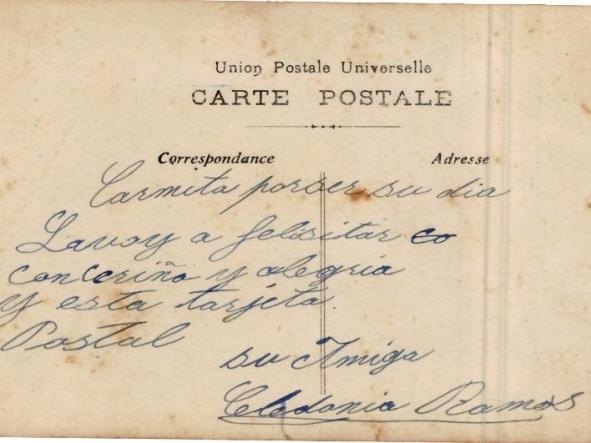 Union Postale Universelle
CARTE POSTALE
Correspondance Adresse
Carmita porser su dia
Lavoy a felisitar co
conceriño y alegria
y esta tarjeta
Postal
su Amiga
Celedonia Ramos